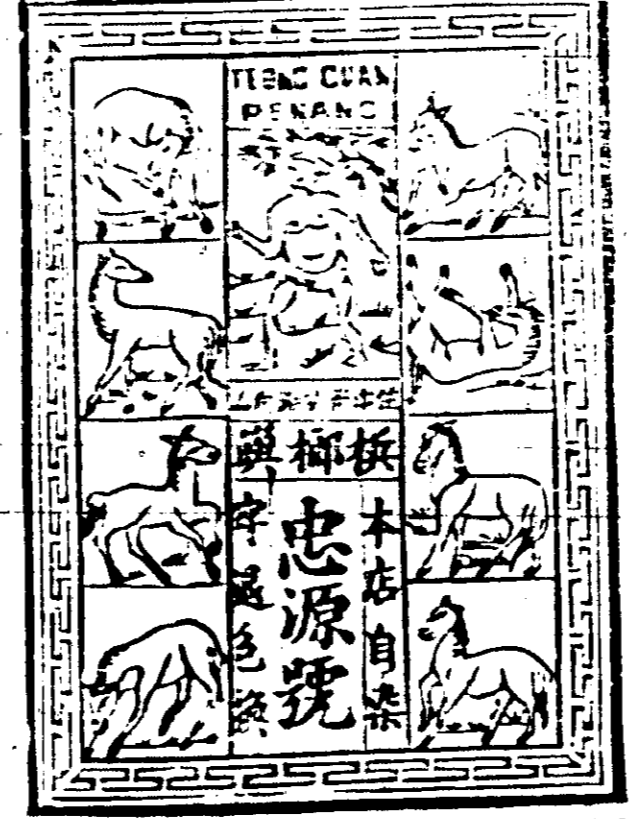 TIONG GUAN
PENANG
檳榔嶼
本店自染
忠源號
字退色換